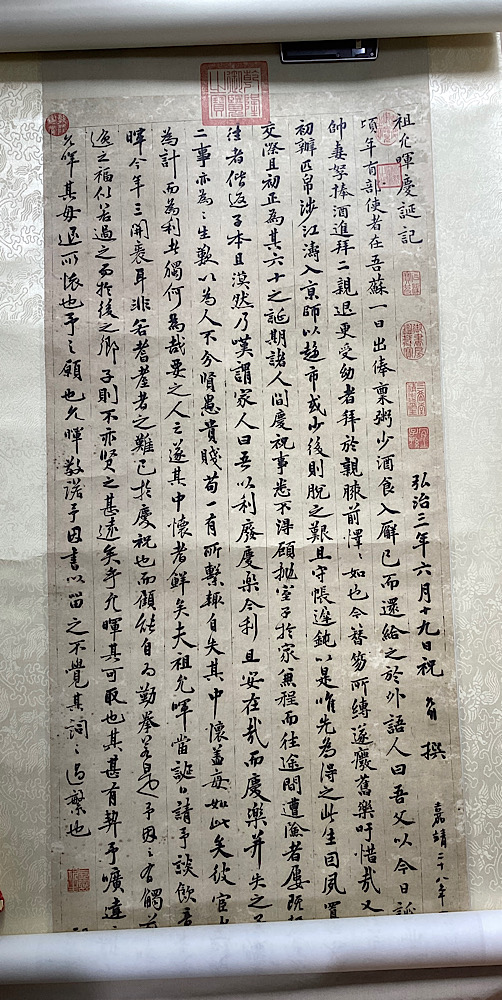 祖允暉慶誕記
弘治三年六月十九日祝 撰
嘉靖二十八年
頃年有部使者在吾蘇一日出俸稟粥少酒食入廨已而還給之於外語人曰吾父以今日誕
帥妻孥捧酒進拜二親退更受幼者拜於親膝前懌〻如也今簪笏所縛遂癈舊樂吁惜哉又
初辦匹帛涉江濤入京師以趨市或少後則脫之艱且守帳遲鈍以是唯先為得之此生回夙置
交際且初正為其六十之誕期諸人間慶祝事悉不得顧抛室子於家兼程而往途間遭險者屢既
往者偕返子本且漠然乃嘆謂家人曰吾以利廢慶樂今利且安在哉而慶樂并失之
二事亦為〻生歎以為人不分賢愚貴賤苟一有所繫輒自失其中懷蓋每如此矣彼宦
為計而為利者獨何為哉要之人之遂其中懷者鮮矣夫祖允暉當誕日請予談飲
暉今年三開袠耳非若耆耋者之難已於慶祝也而顧能自為勤拳若是予因之有觸前
逸之福似若過之而於後之鄉子則不亦賢之甚遠矣乎允暉其可取也其甚有契予曠達
允暉其毋退所懷也予之領也允暉敬諾予因書以留之不覺其詞之過繁也
乾隆御覽之寶